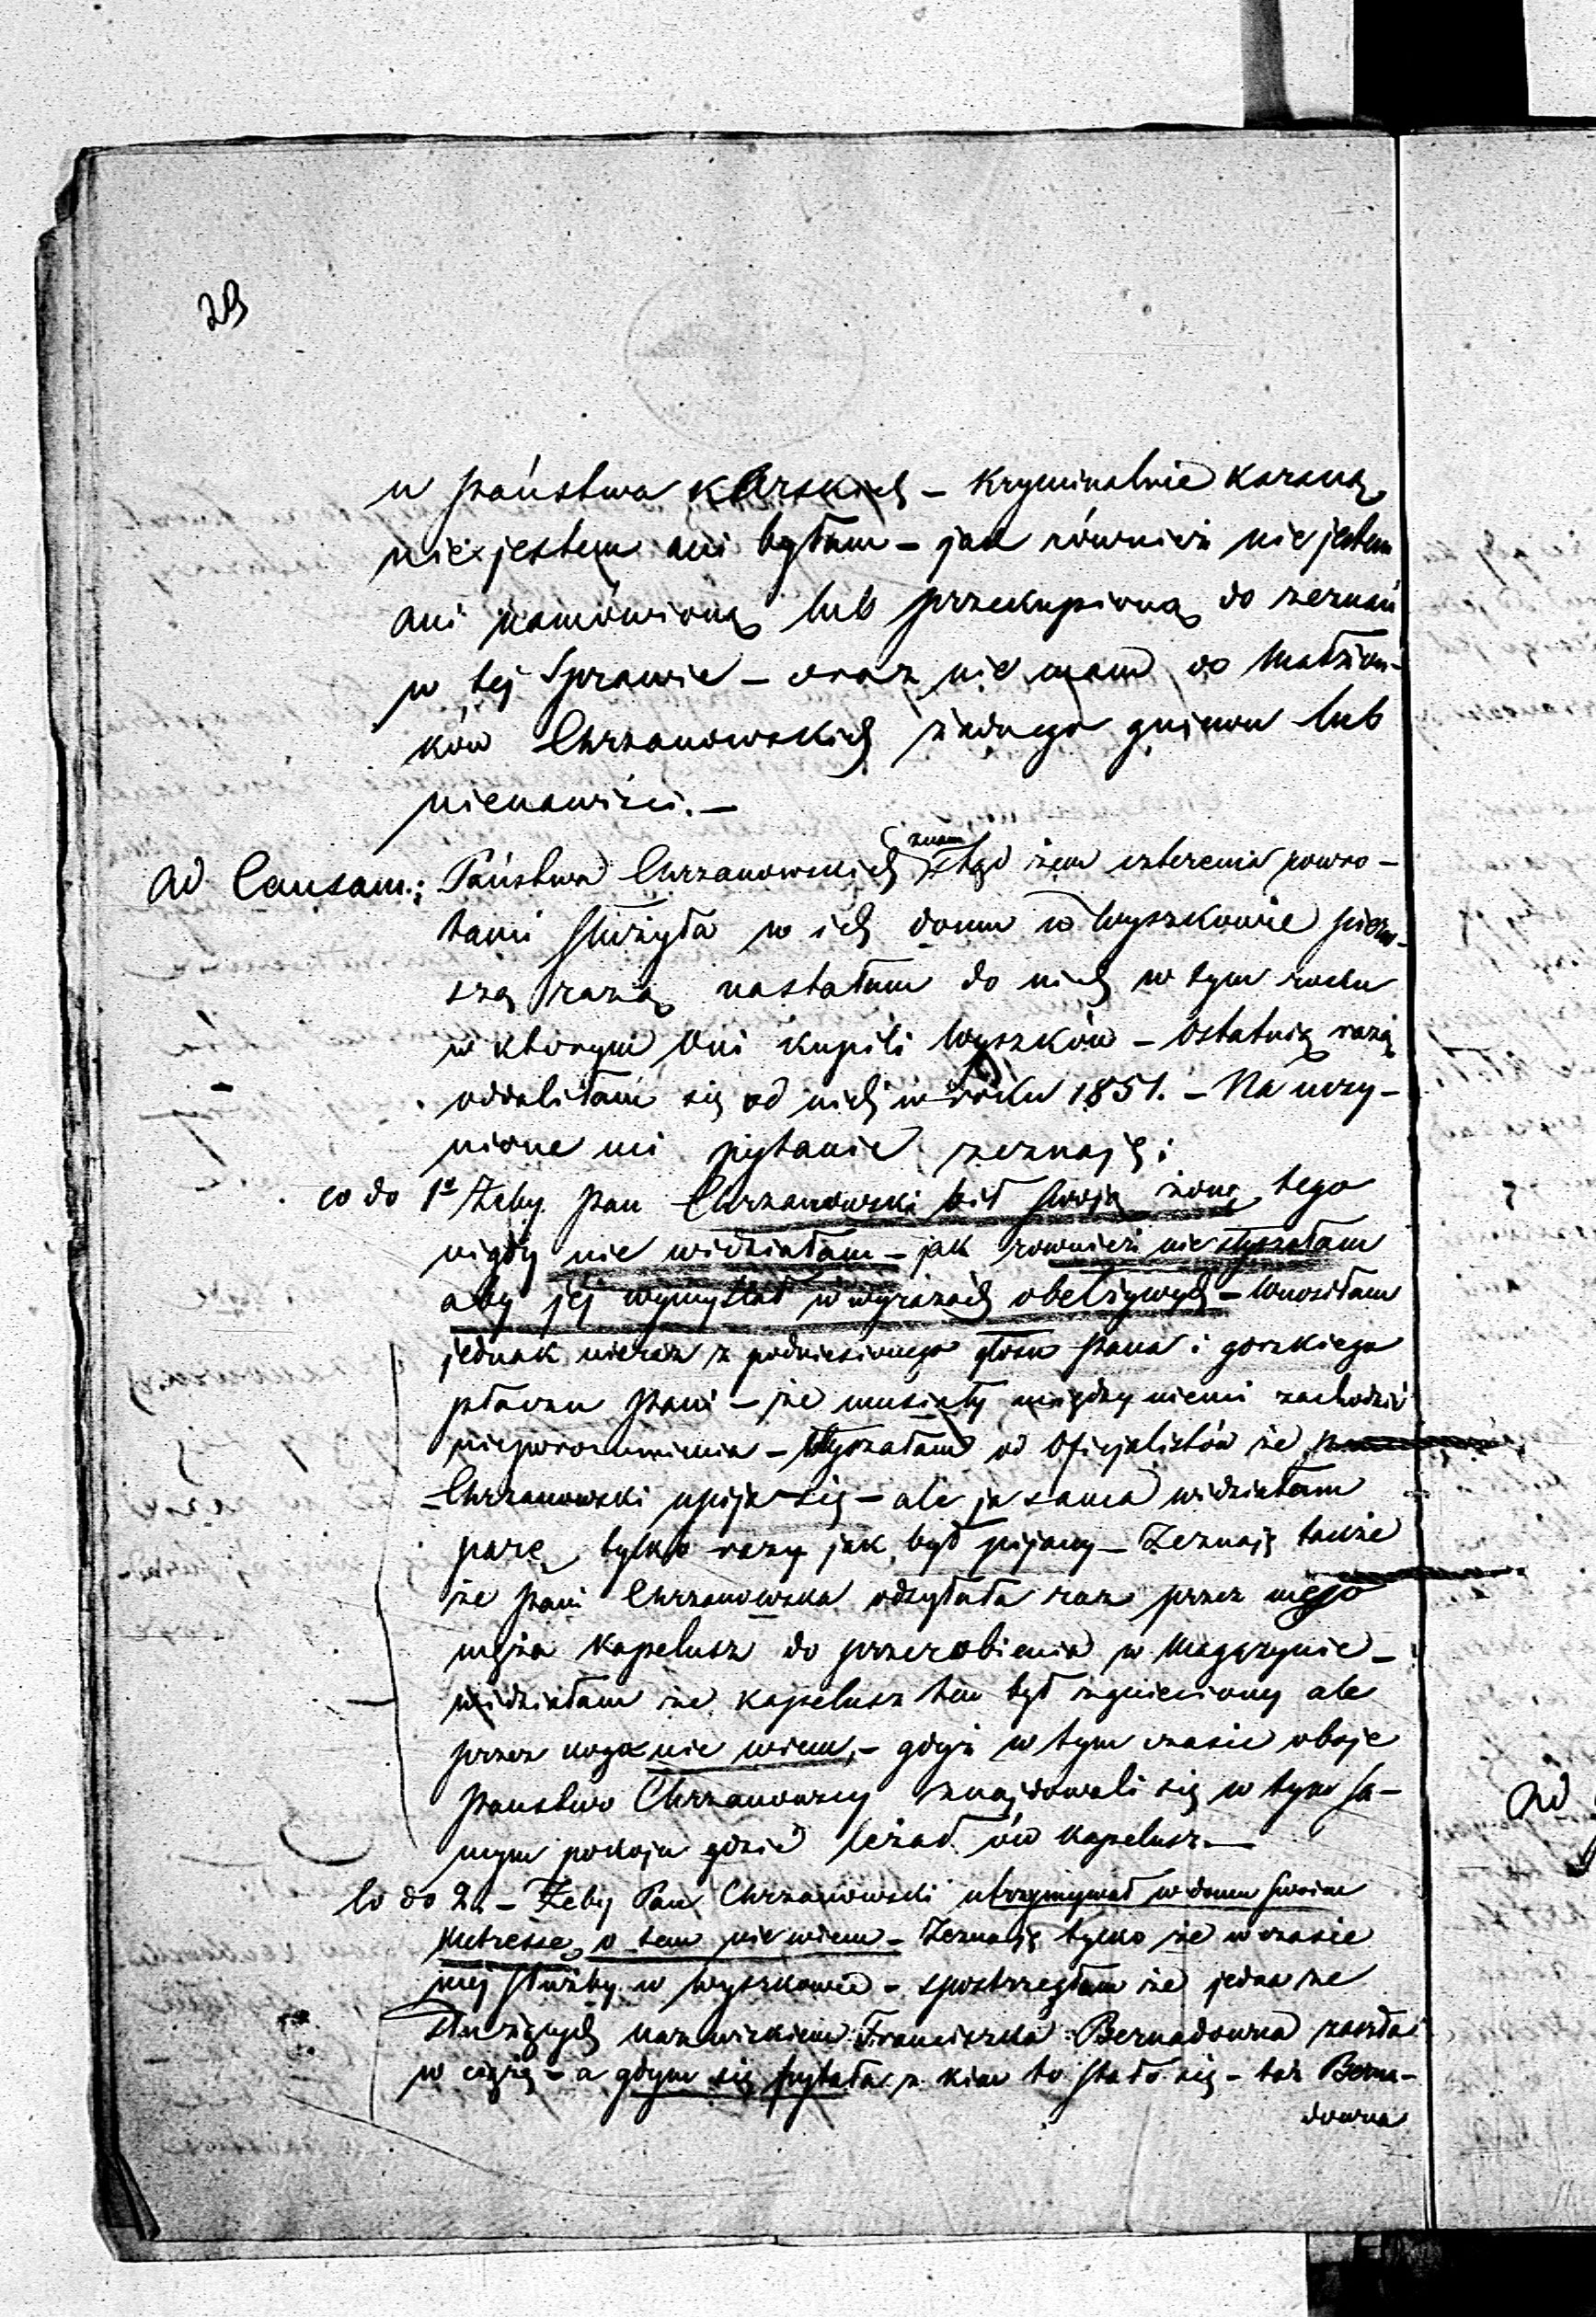 29
u Państwa Karskich – Kryminalnie karaną
nie jestem ani byłam – jak również nie jestem
ani namówioną lub przekupioną do zeznań
w tej Sprawie – oraz nie mam do Małżon-
ków Chrzanowskich żadnego gniewu lub
nienawiści. –
Ad Causam: Państwa Chrzanowskich znam ztąd żem czterema powro-
tami służyła w ich domu w Wyszkowie pierw-
szą razą nastałam do nich w tym roku
w którym Oni kupili Wyszków – Ostatnią razą
oddaliłam się od nich w roku 1851. – Na uczy-
nione mi pytanie zeznaję:
co do 1º Żeby Pan Chrzanowski bił swoją żonę tego
nigdy nie widziałam – jak rownież nie słyszałam
aby jej wymyślał w wyrazach obelżywych – Wnosiłam
jednak nieraz z podniesionego głosu Pana i gorzkiego
płaczu Pani – że musiały między niemi zachodzić
nieporozumienia – Słyszałam od Oficjalistów że
Chrzanowski upija się – ale ja sama widziałam
parę tylko razy jak był pijany – Zeznaję także
że Pani Chrzanowska odsyłała raz przez mego
męża kapelusz do przerobienia w Magazynie –
widziałam że kapelusz ten był zgnieciony ale
przez kogo nie wiem, – gdyż w tym czasie oboje
Państwo Chrzanowscy znajdowali się w tym sa-
mym pokoju gdzie leżał ów kapelusz. –
Co do 2. – Żeby Pan Chrzanowski utrzymywał w domu swoim
Metressę, o tem nie wiem – Zeznaję tylko że w czasie
mej służby w Wyszkowie – spostrzegłam że jedna ze
służących nazwiskiem Franciszka Bernadowna zaszła
w ciążę – a gdym się pytała z kim to stało się – taż Berna-
downa
Ad